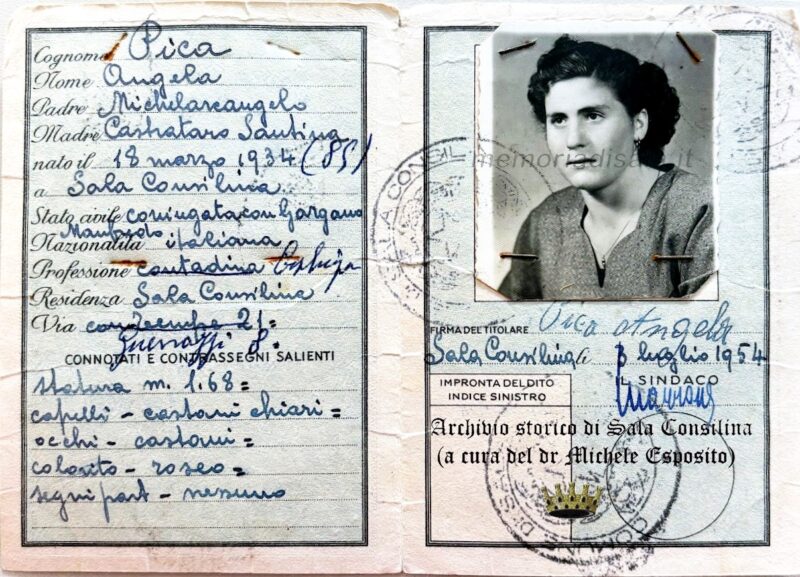 Cognome Pica
Nome Angela
Padre Michelarcangelo
Madre Castrataro Santina
nato il 18 marzo 1934 (85)
a Sala Consilina
Stato civile coniugata con Gargano
Manfredo
Nazionalità italiana
Professione contadina
Residenza Sala Consilina
Via 21=
8.
CONNOTATI E CONTRASSEGNI SALIENTI
statura m. 1.68=
capelli - castani chiari=
occhi - castani=
colorito - roseo=
segni part - nessuno
memoriadisala.it
FIRMA DEL TITOLARE Pica Angela
Sala Consilina li 3 luglio 1954
IL SINDACO
IMPRONTA DEL DITO
INDICE SINISTRO
Archivio storico di Sala Consilina
(a cura del dr Michele Esposito)